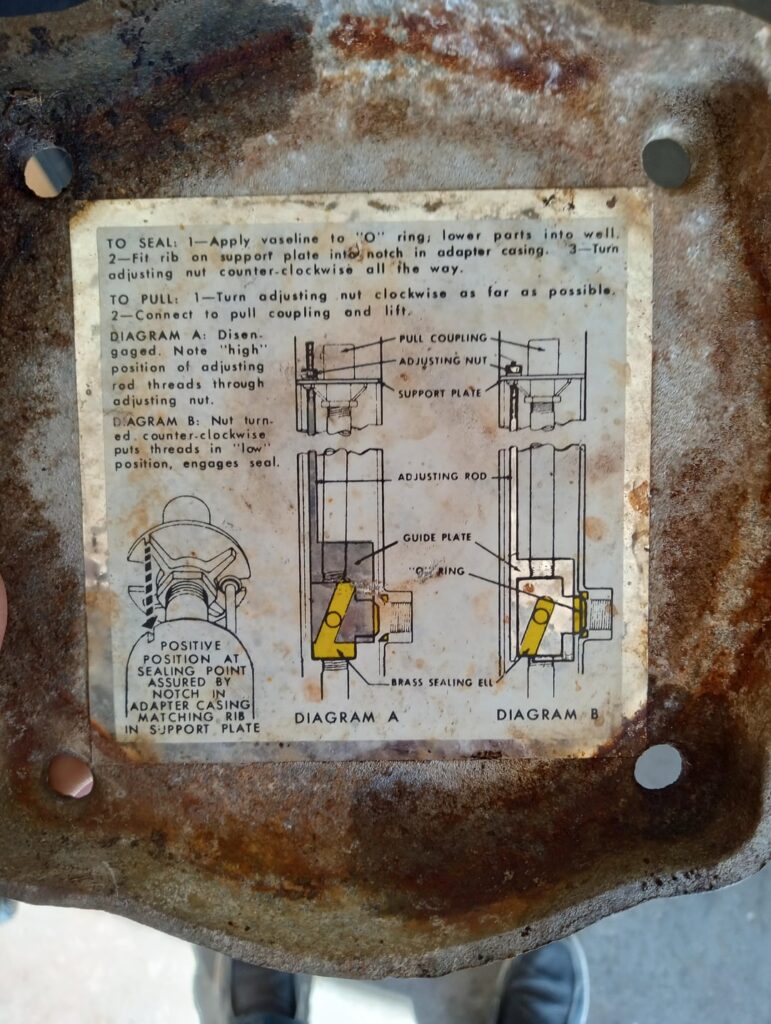 TO SEAL: 1—Apply vaseline to "O" ring; lower parts into well.
2—Fit rib on support plate into notch in adapter casing. 3—Turn
adjusting nut counter-clockwise all the way.
TO PULL: 1—Turn adjusting nut clockwise as far as possible.
2—Connect to pull coupling and lift.
DIAGRAM A: Disen-
gaged. Note "high"
position of adjusting
rod threads through
adjusting nut.
DIAGRAM B: Nut turn-
ed counter-clockwise
puts threads in "low"
position, engages seal.
PULL COUPLING
ADJUSTING NUT
SUPPORT PLATE
ADJUSTING ROD
GUIDE PLATE
"O" RING
BRASS SEALING ELL
POSITIVE
POSITION AT
SEALING POINT
ASSURED BY
NOTCH IN
ADAPTER CASING
MATCHING RIB
IN SUPPORT PLATE
DIAGRAM A
DIAGRAM B